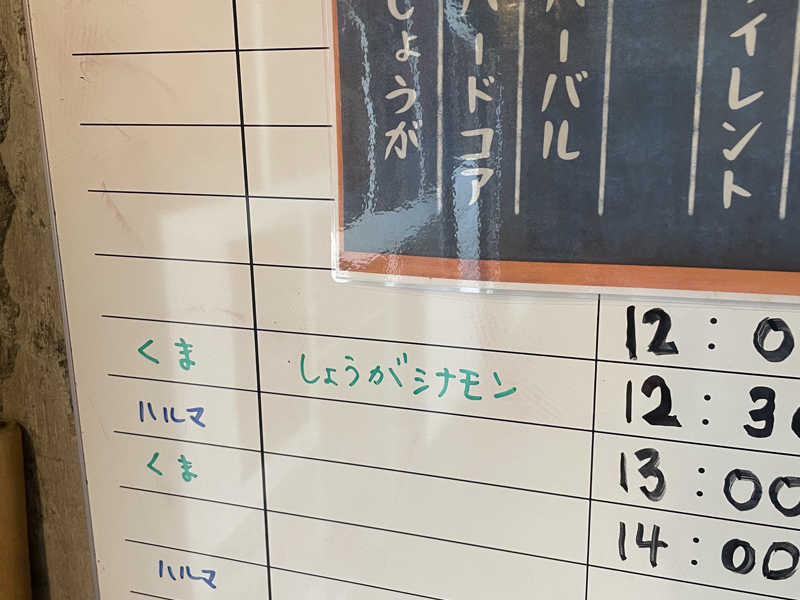 しょうが
ハードコア
ーバル
イレント
12:0
くま しょうがシナモン
ハルマ 12:30
くま
13:00
14:00
ハルマ